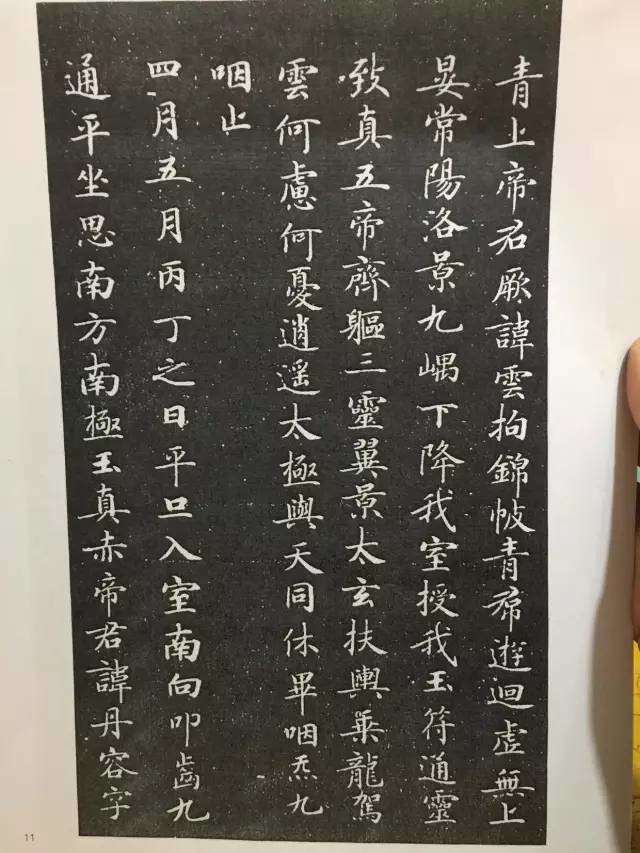 青上帝君厥諱雲拘錦帔青帬遊迴虛無上
晏常陽洛景九嵎下降我室授我玉符通靈
致真五帝齊軀三靈翼景太玄扶輿乗龍駕
雲何慮何憂逍遥太極與天同休畢咽炁九
咽止
四月五月丙丁之日平旦入室南向叩齒九
通平坐思南方南極玉真赤帝君諱丹容字
11